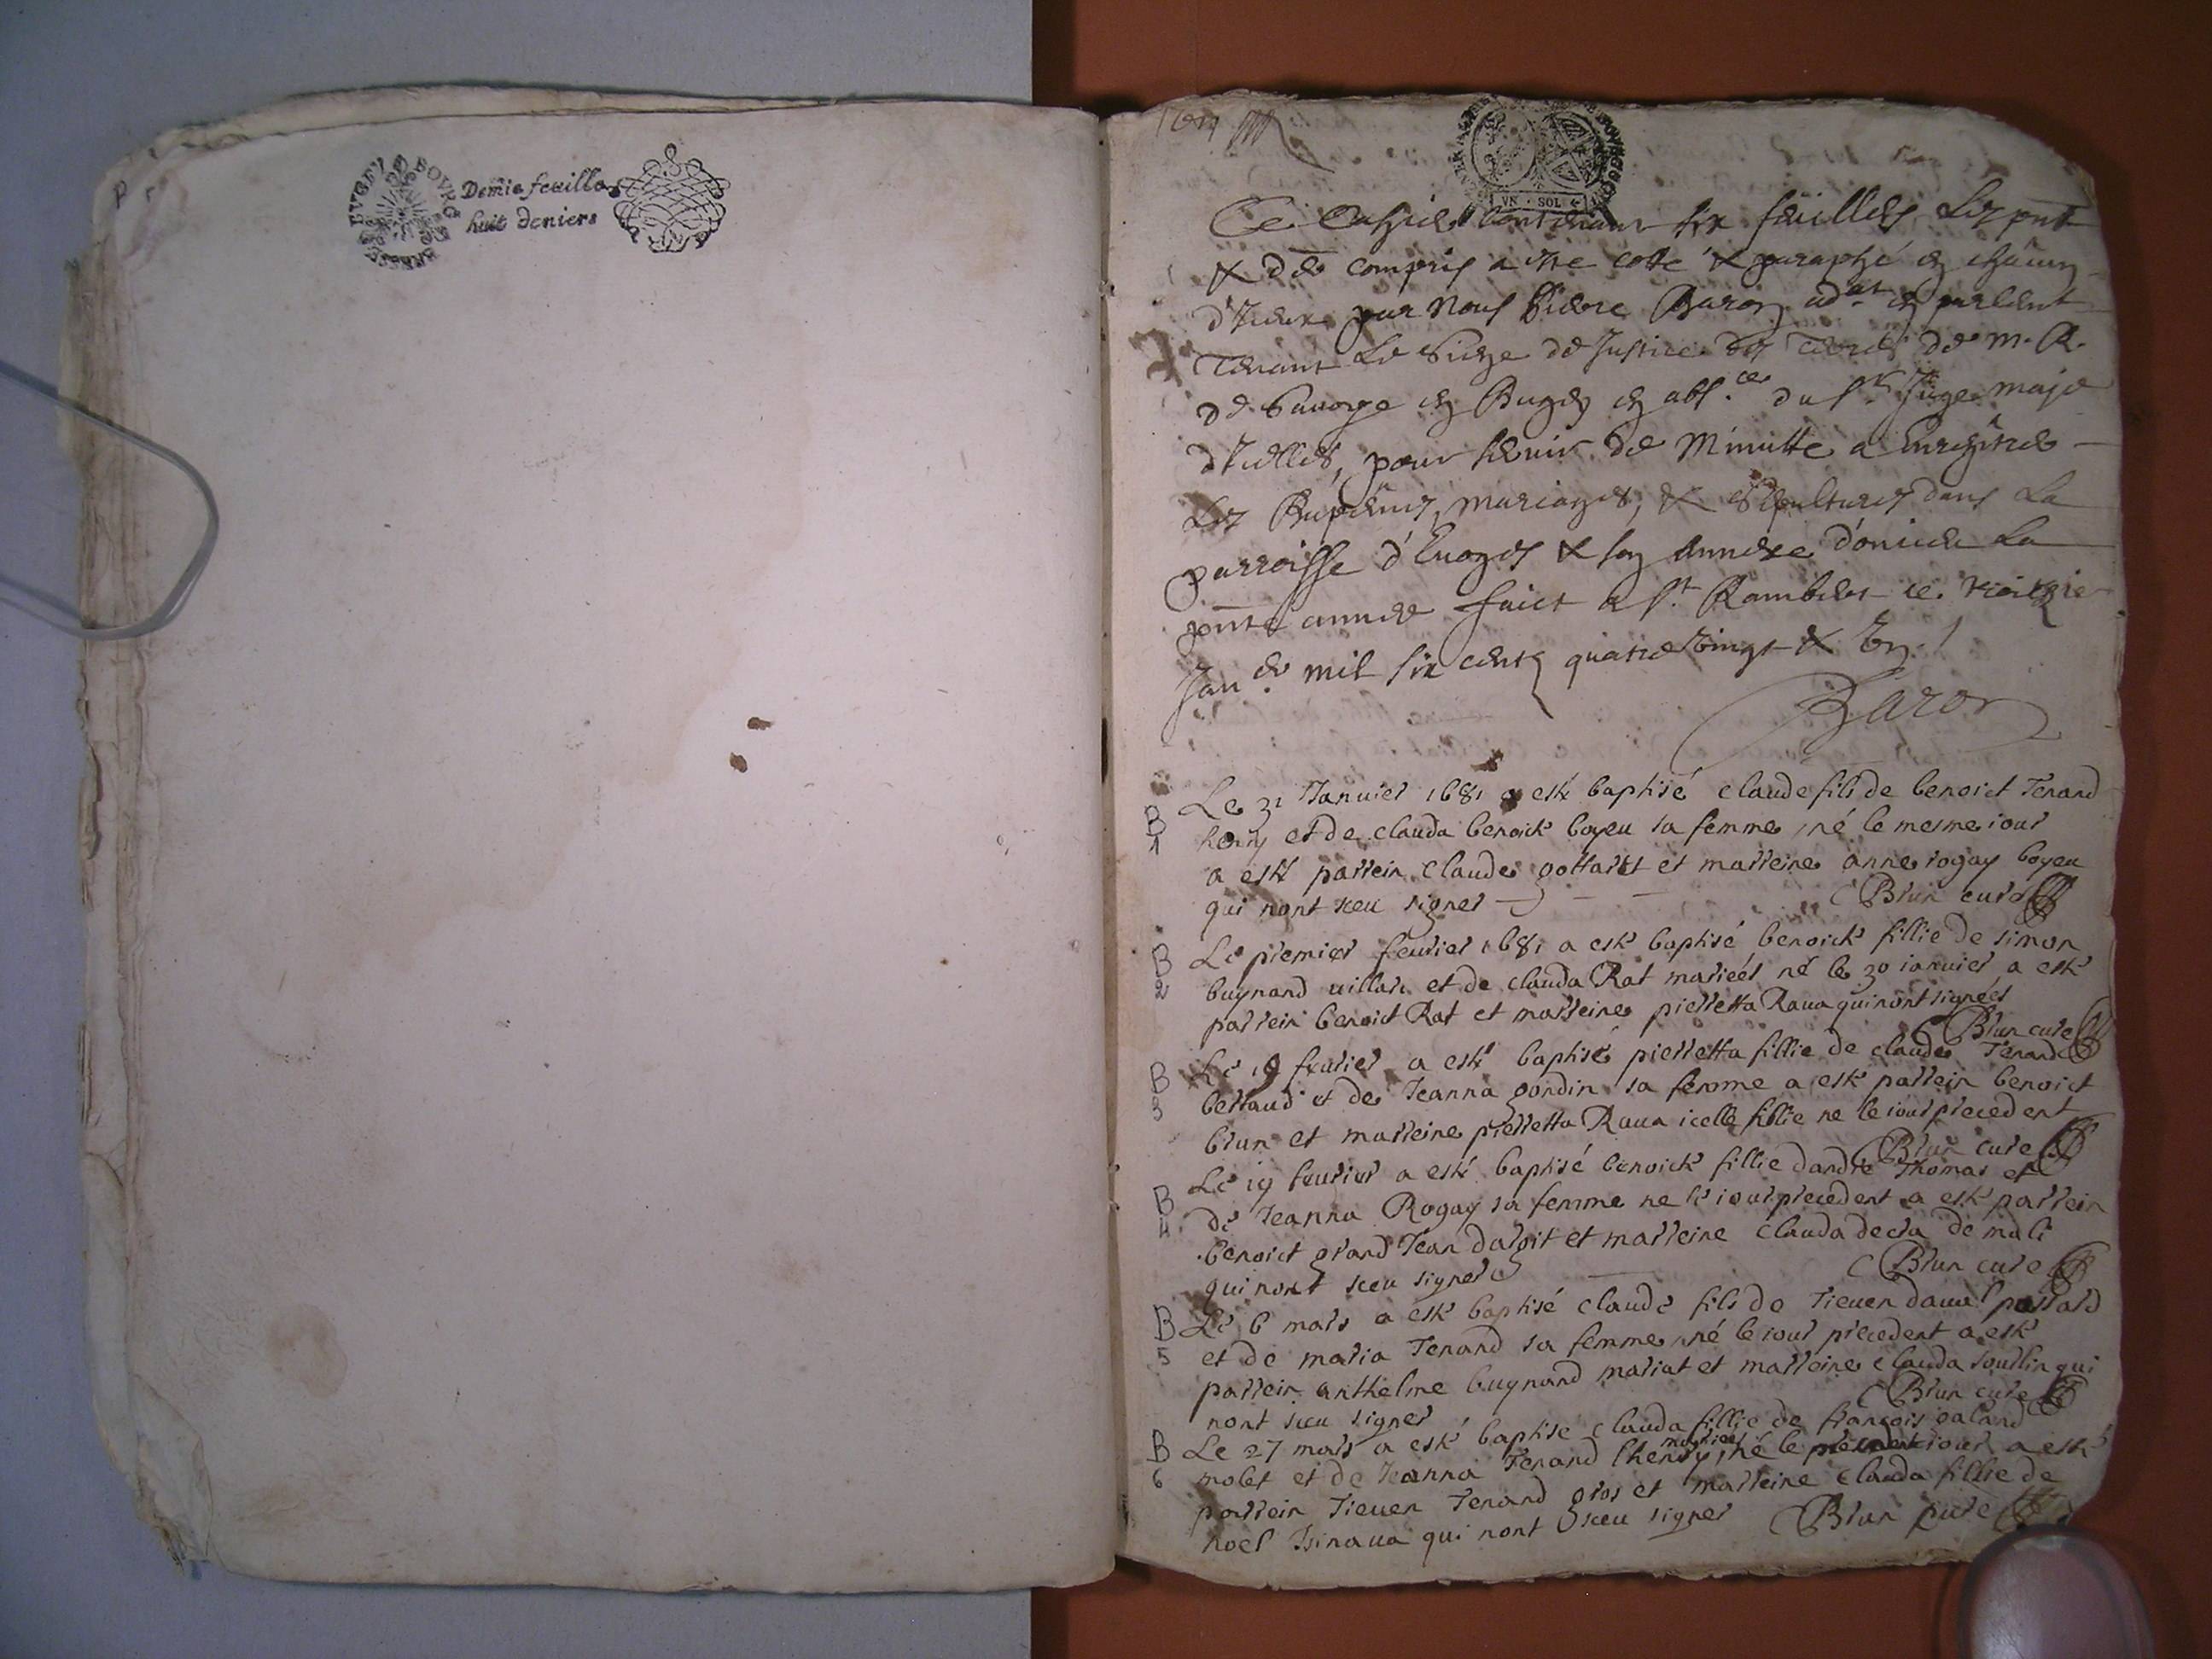 Demie feuille
huit deniers
BRESSE BOVRG BVGEY
VN · SOL
Ce Cahier Contenant six feuilles Les pntes
& dre compris a este cotte & paraphé en chacun
d'Iceux par Nous Pierre Baron adat en parlent
Tenant Le Siege de Justice des Terres de M. R.
de Savoye en Bugey en absce du sr Juge maje
d'Icelles, pour servir de Minutte a Enregistrer
Les Baptemes, mariages, & Sepultures dans La
parroisse d'Euoges & son Annexe d'oncieu La
pnte annee faict a St Rambert ce troizie
Janer mil six cents quatre vingt & Un
Baron
B 1
Le 31 Januier 1681 a esté baptisé claude fils de benoict Tenand
henry et de clauda benoite boyeu sa femme né le mesme iour
a esté parrein claude gottaret et marreine anne rogay boyeu
qui nont sceu signer
Brun curé
B 2
Le premier feurier 1681 a esté baptisé benoicte fillie de simon
bugnand uillar et de clauda Rat mariées né le 30 ianuier a esté
parrein benoict Rat et marreine pierretta Raua qui nont signées
Brun cure
B 3
Le 19 feurier a esté baptisé pierretta fillie de claude Tenand
bertaud et de Jeanna gondin sa femme a esté parrein benoict
brun et marreine pierretta Raua icelle fillie ne le iour precedent
Brun cure
B 4
Le 19 feurier a esté baptisé benoicte fillie dandre Thomas et
de Jeanna Rogay sa femme ne le iour precedent a esté parrein
benoict grand Jean dargit et marreine clauda decra de mali
qui nont sceu signer
Brun cure
B 5
Le 6 mars a esté baptisé claude fils de Tieuen dauul passard
et de maria Tenand sa femme né le iour precedent a esté
parrein anthelme bugnand mariat et marreine clauda sourlin qui
nont sceu signer
Brun cure
B 6
Le 27 mars a esté baptise clauda fillie de françois galand
molet et de Jeanna Tenand lhenry mariées né le precedent iour a esté
parrein Tieuen Tenand gros et marreine clauda fillie de
noel Tsinaua qui nont sceu signer
Brun cure